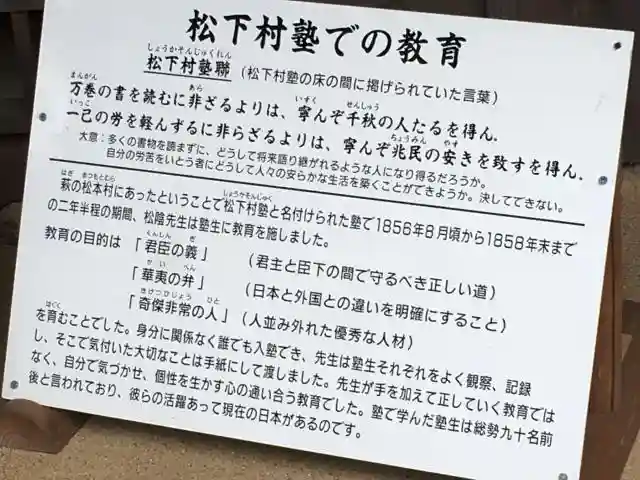 松下村塾での教育
しょうかそんじゅくれん
松下村塾聯 (松下村塾の床の間に掲げられていた言葉)
まんがん あら いずく せんしゅう
万巻の書を読むに非ざるよりは、寧んぞ千秋の人たるを得ん.
いっこ ちょうみん やす
一己の労を軽んずるに非らざるよりは、寧んぞ兆民の安きを致すを得ん.
大意:多くの書物を読まずに、どうして将来語り継がれるような人になり得るだろうか。
自分の労苦をいとう者にどうして人々の安らかな生活を築くことができようか。決してできない。
はぎ まつもとむら しょうかそんじゅく
萩の松本村にあったということで松下村塾と名付けられた塾で1856年8月頃から1858年末まで
の二年半程の期間、松陰先生は塾生に教育を施しました。
くんしん ぎ
教育の目的は 「君臣の義」 (君主と臣下の間で守るべき正しい道)
か い べん
「華夷の弁」 (日本と外国との違いを明確にすること)
きけつひじょう ひと
「奇傑非常の人」 (人並み外れた優秀な人材)
はぐく
を育むことでした。身分に関係なく誰でも入塾でき、先生は塾生それぞれをよく観察、記録
し、そこで気付いた大切なことは手紙にして渡しました。先生が手を加えて正していく教育では
なく、自分で気づかせ、個性を生かす心の通い合う教育でした。塾で学んだ塾生は総勢九十名前
後と言われており、彼らの活躍あって現在の日本があるのです。